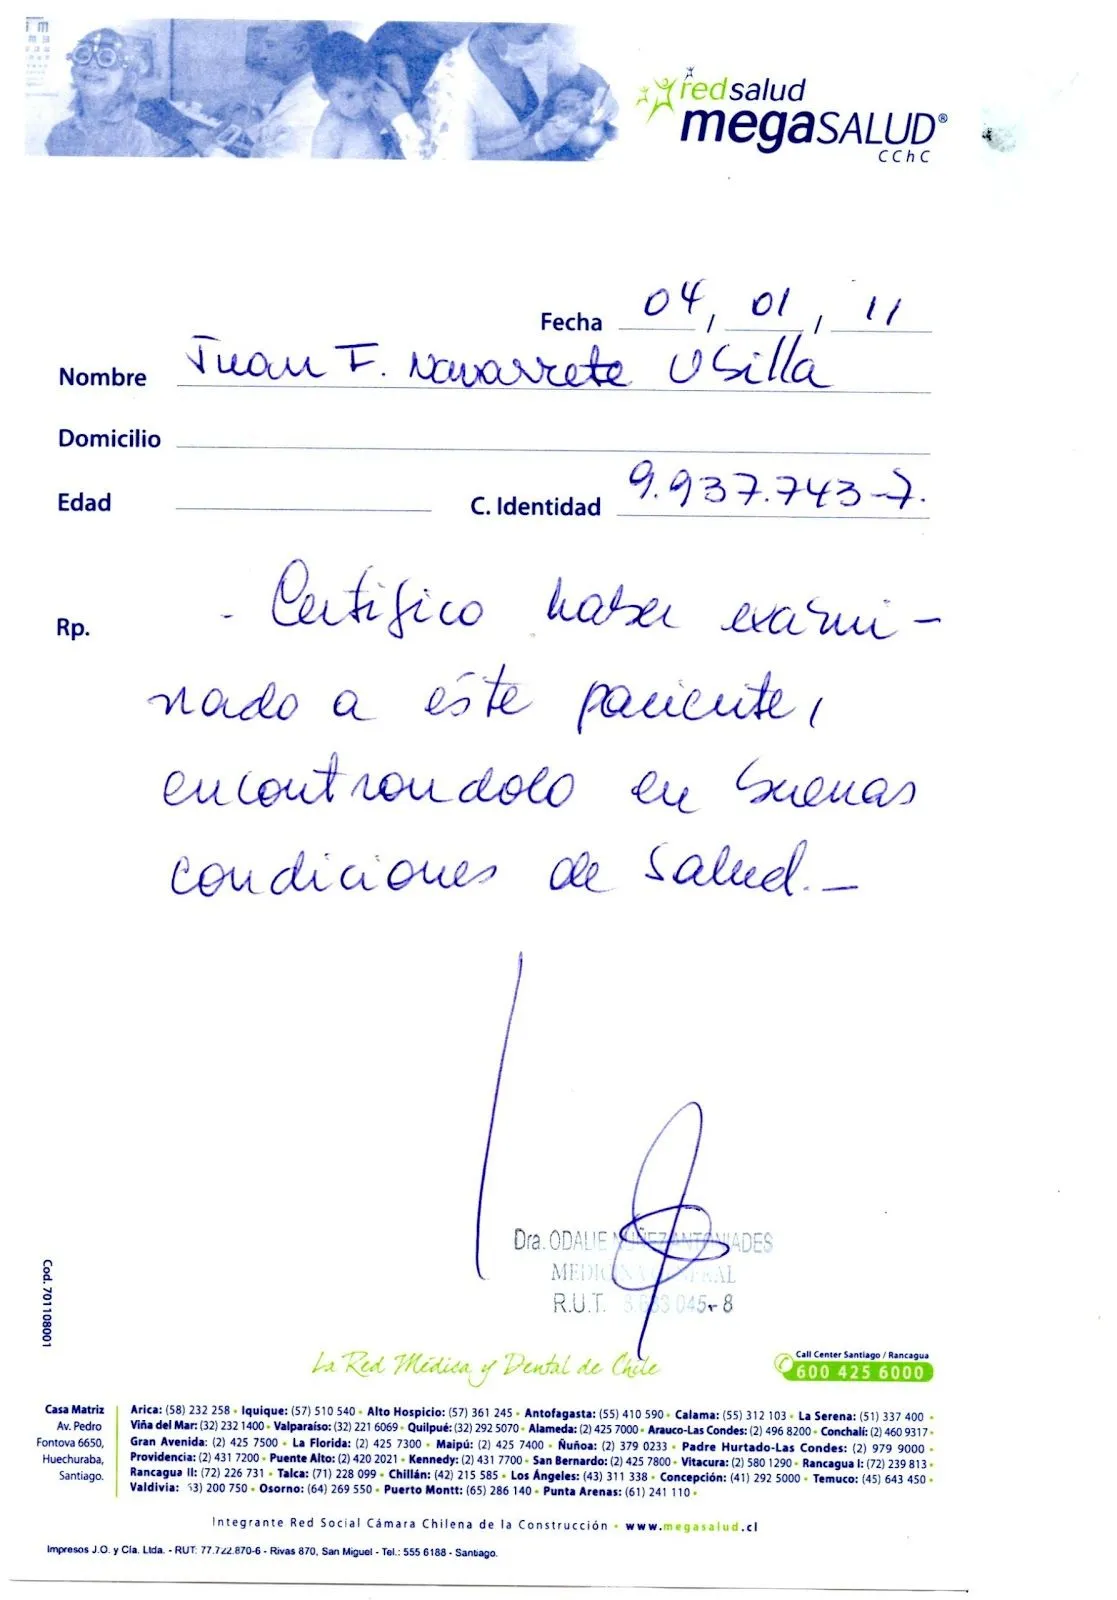 redsalud
megaSALUD®
CChC
Fecha 04, 01, 11
Nombre Juan F. Navarrete Ubilla
Domicilio
Edad C. Identidad 9.937.743-7.
Rp. - Certifico haber exámi-
nado a éste paciente,
encontrandolo en buenas
condiciones de salud.-
Dra. ODALIE NUÑEZ ANTONIADES
MEDICINA GENERAL
R.U.T. 045-8
Cod. 701108001
La Red Médica y Dental de Chile
Call Center Santiago / Rancagua
600 425 6000
Casa Matriz
Av. Pedro
Fontova 6650,
Huechuraba,
Santiago.
Arica: (58) 232 258 • Iquique: (57) 510 540 • Alto Hospicio: (57) 361 245 • Antofagasta: (55) 410 590 • Calama: (55) 312 103 • La Serena: (51) 337 400 •
Viña del Mar: (32) 232 1400 • Valparaíso: (32) 221 6069 • Quilpué: (32) 292 5070 • Alameda: (2) 425 7000 • Arauco-Las Condes: (2) 496 8200 • Conchalí: (2) 460 9317 •
Gran Avenida: (2) 425 7500 • La Florida: (2) 425 7300 • Maipú: (2) 425 7400 • Ñuñoa: (2) 379 0233 • Padre Hurtado-Las Condes: (2) 979 9000 •
Providencia: (2) 431 7200 • Puente Alto: (2) 420 2021 • Kennedy: (2) 431 7700 • San Bernardo: (2) 425 7800 • Vitacura: (2) 580 1290 • Rancagua I: (72) 239 813 •
Rancagua II: (72) 226 731 • Talca: (71) 228 099 • Chillán: (42) 215 585 • Los Ángeles: (43) 311 338 • Concepción: (41) 292 5000 • Temuco: (45) 643 450 •
Valdivia: 63) 200 750 • Osorno: (64) 269 550 • Puerto Montt: (65) 286 140 • Punta Arenas: (61) 241 110 •
Integrante Red Social Cámara Chilena de la Construcción • www.megasalud.cl
Impresos J.O. y Cía. Ltda. - RUT: 77.722.870-6 - Rivas 870, San Miguel - Tel.: 555 6188 - Santiago.